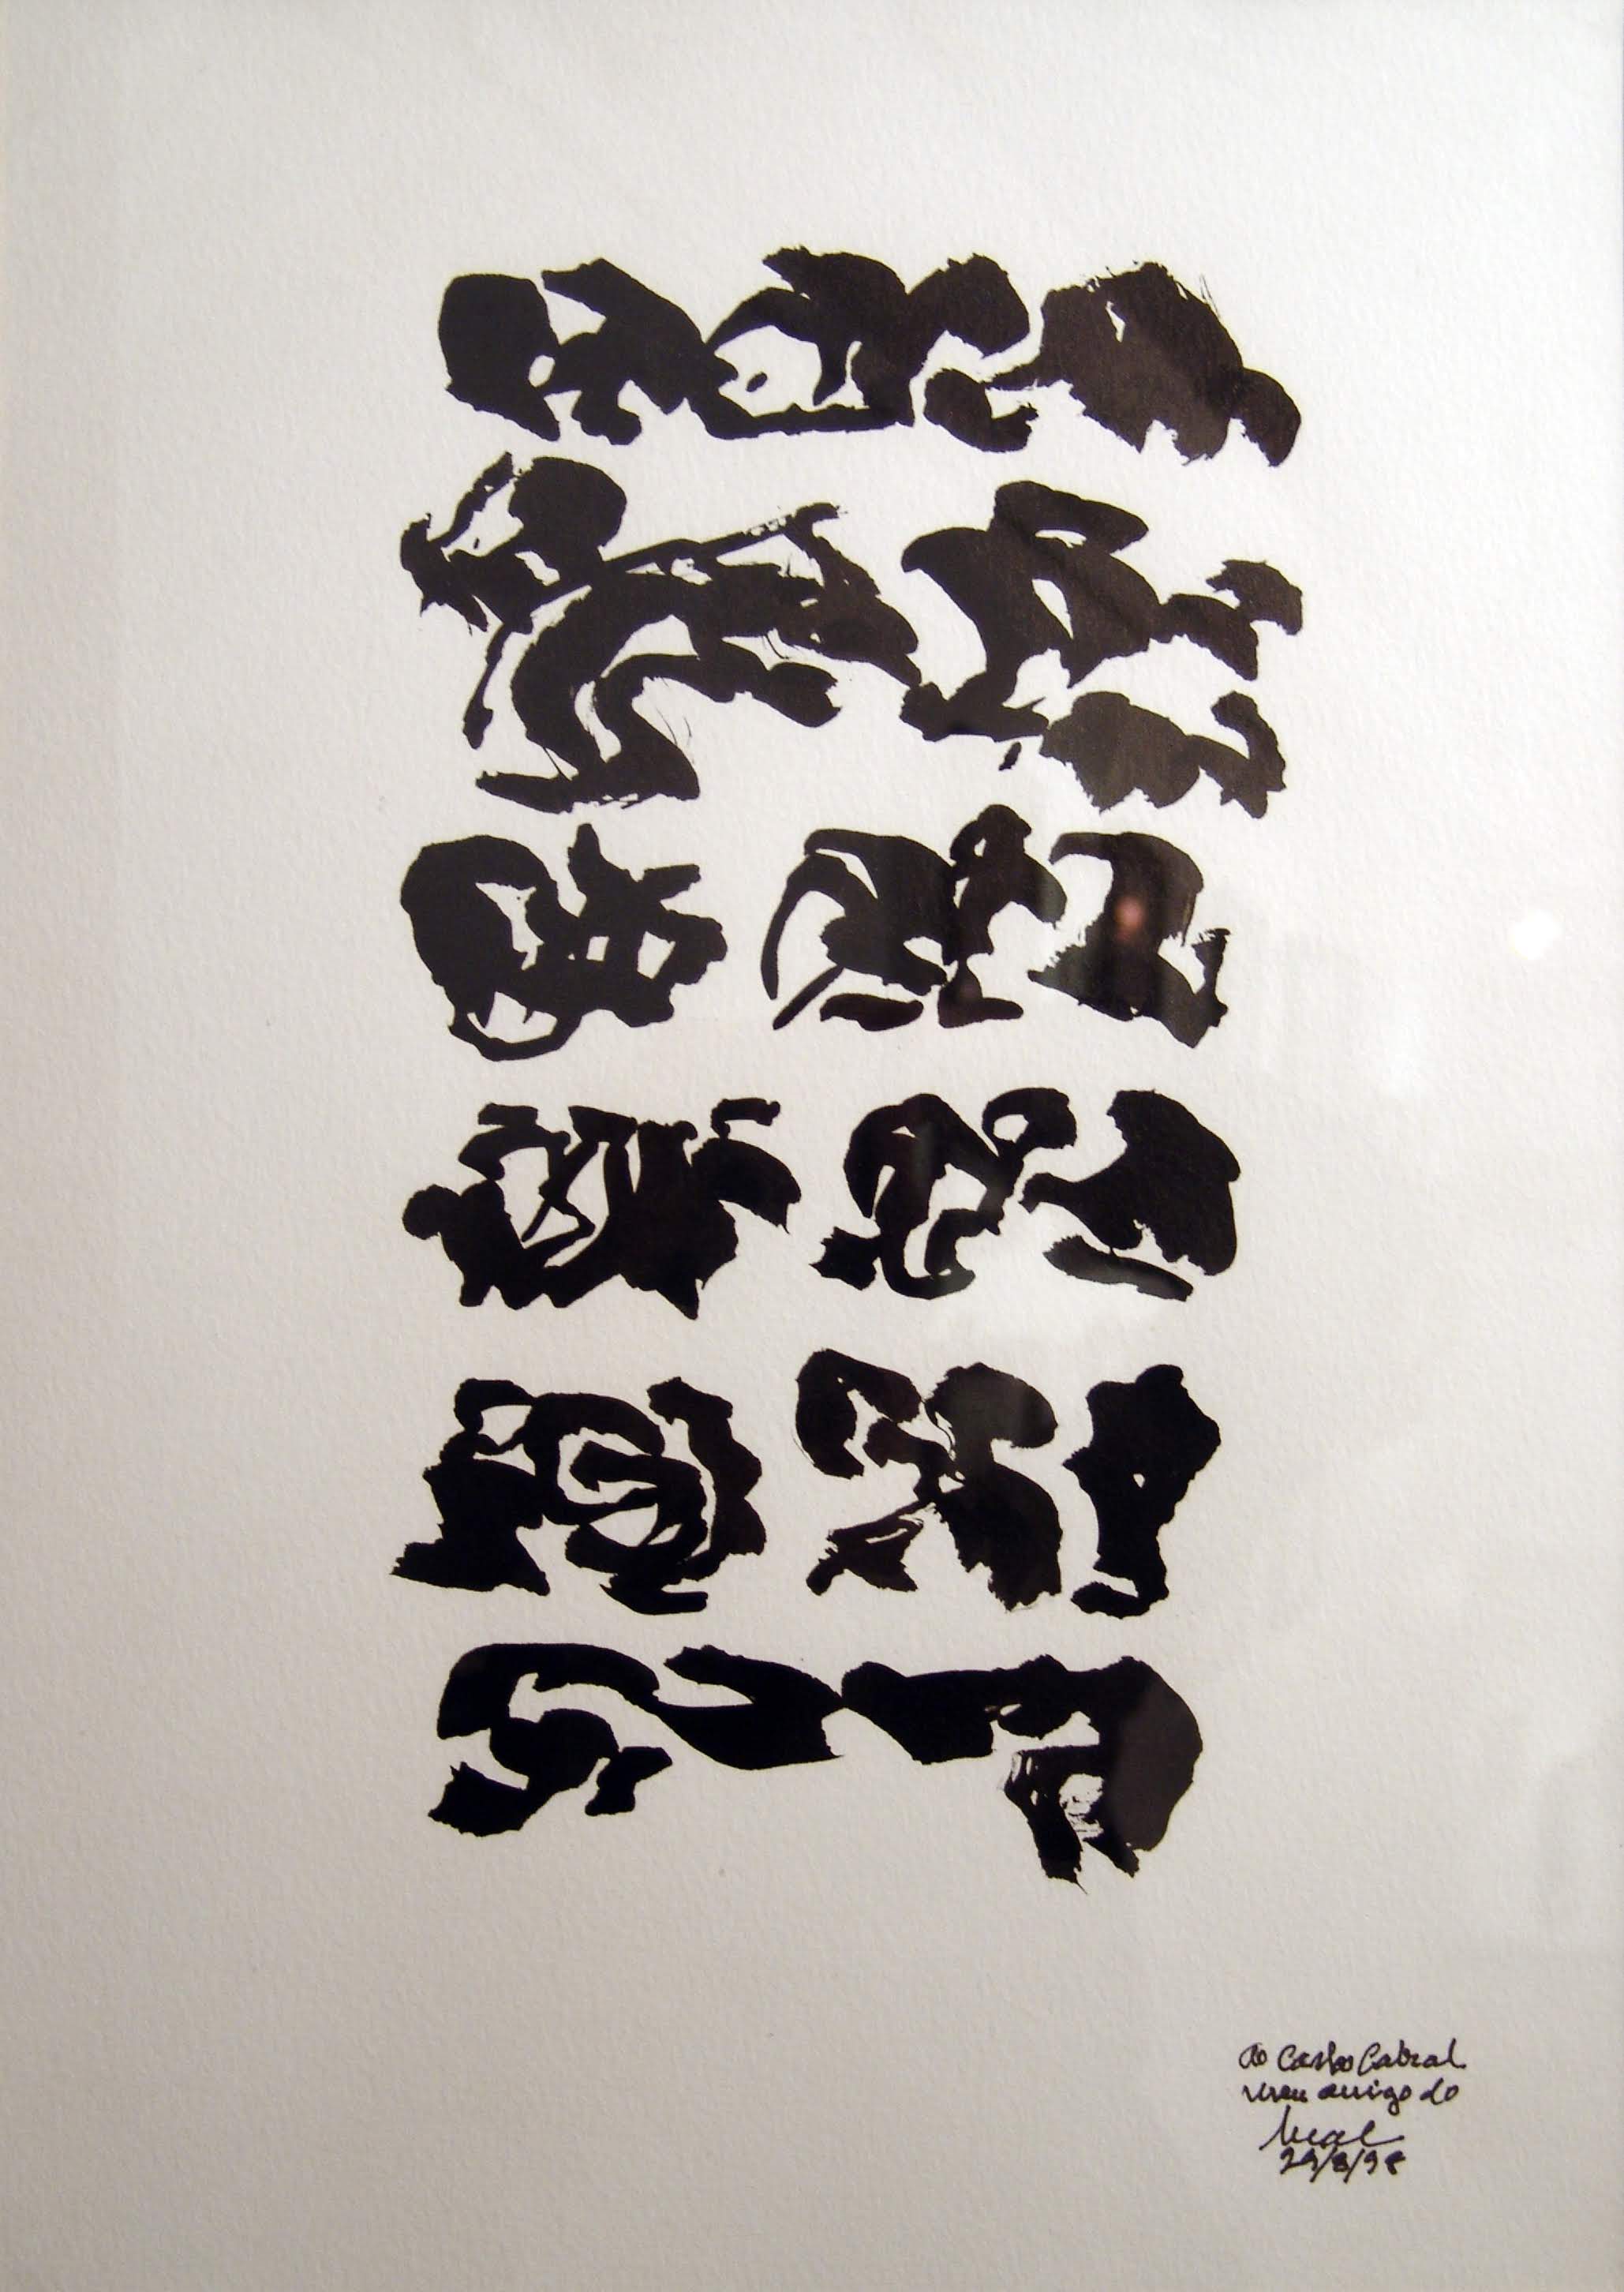 ao Carlos Cabral
meu amigo do
Leal
29/8/98